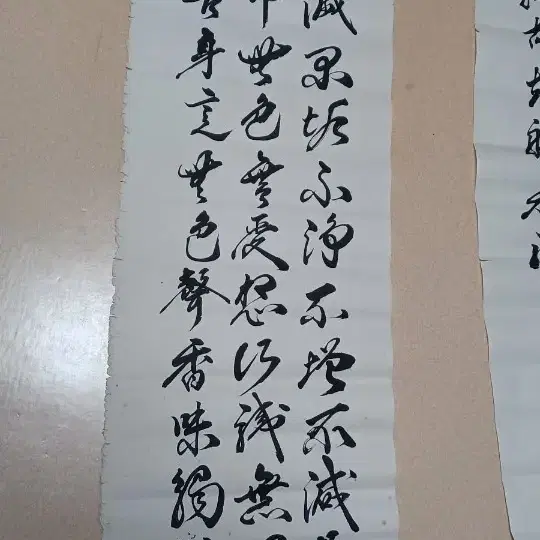 故知般若波
滅不垢不淨不增不減
中無色無受想行識無
舌身意無色聲香味觸